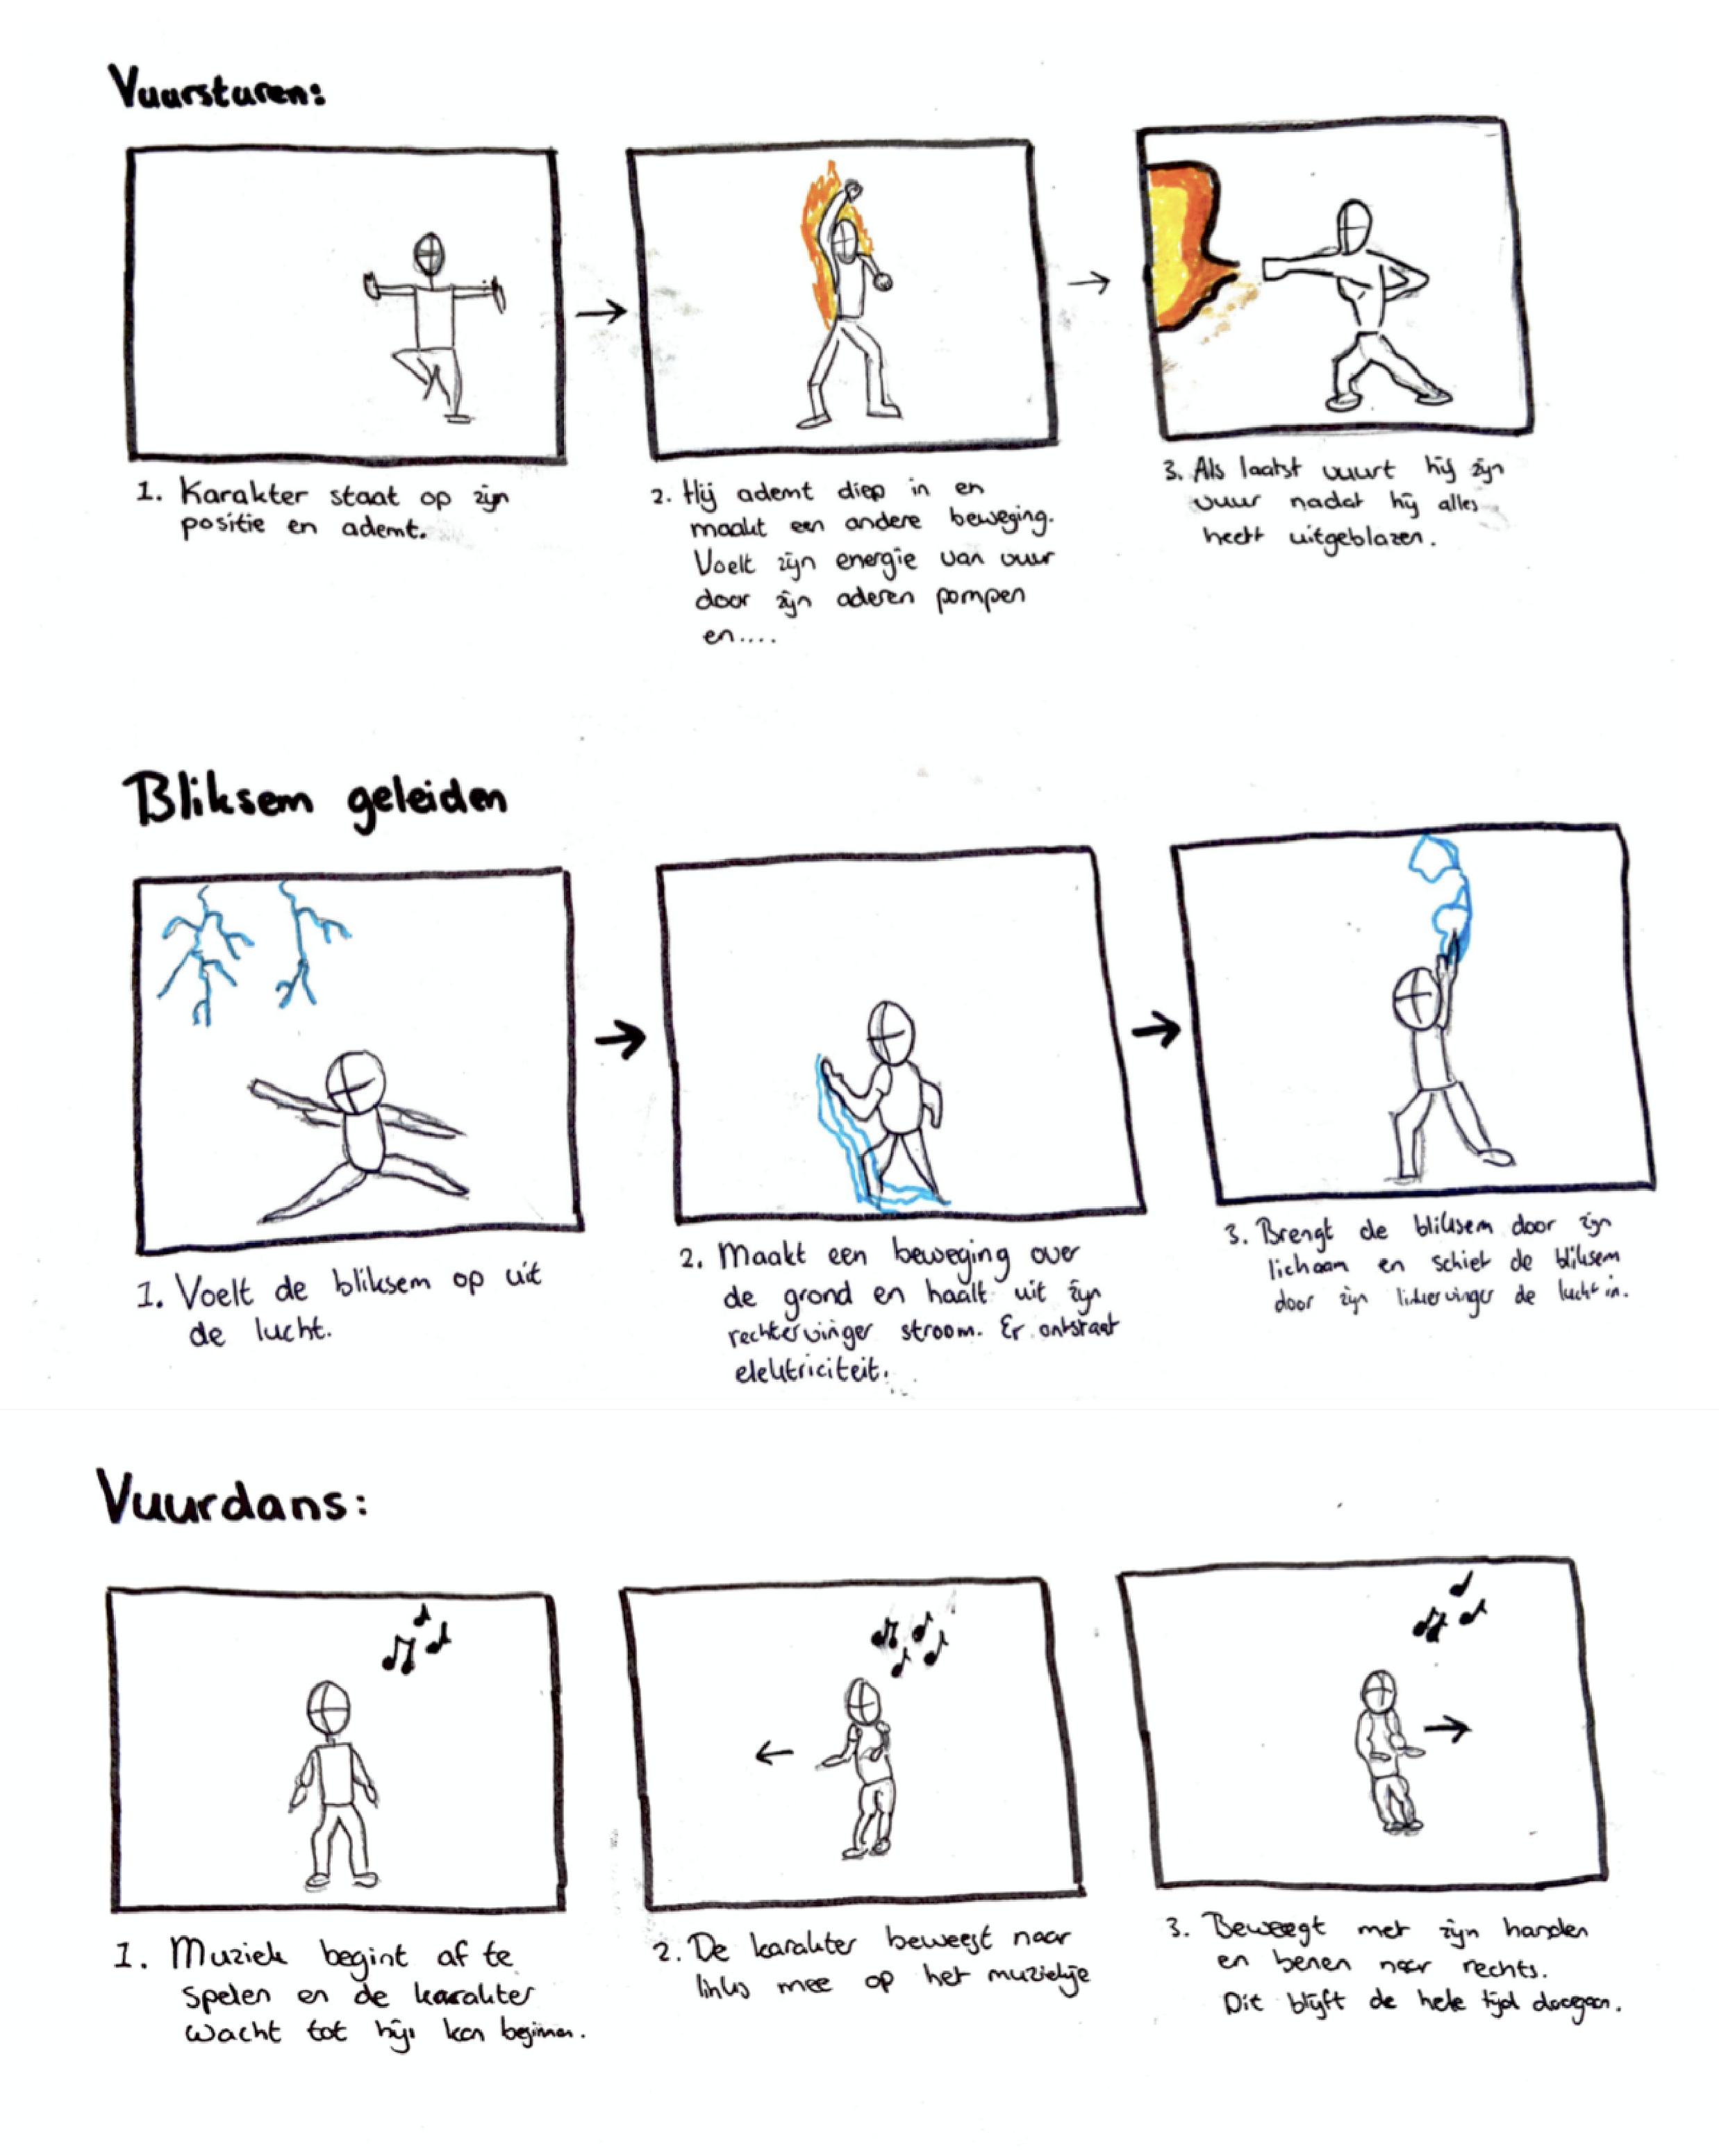 Vuursturen:
1. Karakter staat op zijn
positie en ademt.
2. Hij ademt diep in en
maakt een andere beweging.
Voelt zijn energie van vuur
door zijn aderen pompen
en....
3. Als laatst vuurt hij zijn
vuur nadat hij alles
heeft uitgeblazen.
Bliksem geleiden
1. Voelt de bliksem op uit
de lucht.
2. Maakt een beweging over
de grond en haalt uit zijn
rechtervinger stroom. Er ontstaat
elektriciteit.
3. Brengt de bliksem door zijn
lichaam en schiet de bliksem
door zijn linkervinger de lucht in.
Vuurdans:
1. Muziek begint af te
spelen en de karakter
wacht tot hij kan beginnen.
2. De karakter beweegt naar
links mee op het muziekje
3. Beweegt met zijn handen
en benen naar rechts.
Dit blijft de hele tijd doorgaan.